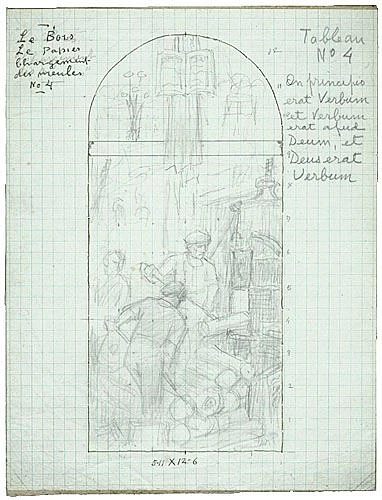 Le Bois
Le Papier
Chargement
des meules
No 4
Tableau
No 4
On principio
erat Verbum
et Verbum
erat apud
Deum, et
Deus erat
Verbum
5-11 X 12-6